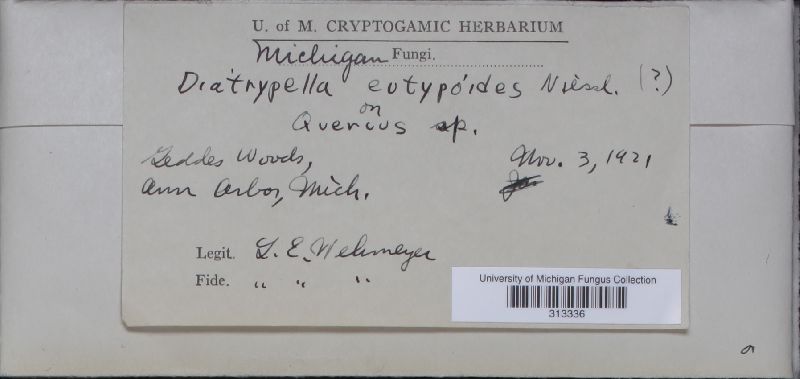 U. of M. CRYPTOGAMIC HERBARIUM
Michigan Fungi.
Diatrypella eutypoides Niessl. (?)
on
Quercus sp.
Geddes Woods, Nov. 3, 1921
Ann Arbor, Mich.
Legit. L. E. Wehmeyer
Fide. " " "
University of Michigan Fungus Collection
313336